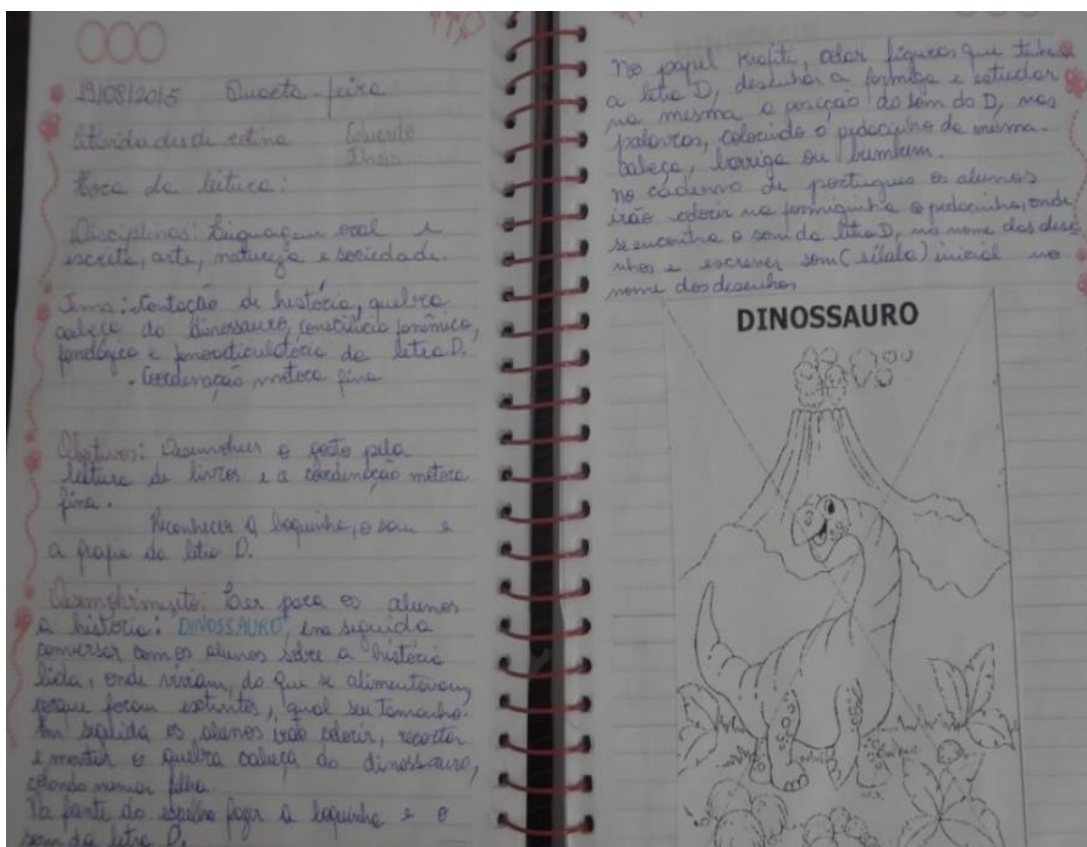 19/08/2015 Quarta-feira
Atividades de rotina Eduardo
Thaís
Hora da leitura:
Disciplinas: Linguagem oral e
escrita, arte, natureza e sociedade.
Tema: Contação de história, quebra
cabeça do dinossauro, consciência fonêmica,
fonológica e fonoarticulatória da letra D.
- Coordenação motora fina
Objetivos: Desenvolver o gosto pela
leitura de livros e a coordenação motora
fina.
Reconhecer a boquinha, o som e
a grafia da letra D.
Desenvolvimento: Ler para os alunos
a história: DINOSSAURO, em seguida
conversar com os alunos sobre a história
lida, onde viviam, do que se alimentavam,
porque foram extintos, qual seu tamanho.
Em seguida os alunos irão colorir, recortar
e montar o quebra cabeça do dinossauro,
colando numa folha.
Na frente do espelho fazer a boquinha e o
som da letra D.
No papel Krafiti, colar figuras que tenha
a letra D, desenhar a formiga e estudar
na mesma a posição do som do D, nas
palavras, colorindo o pedacinho da mesma.
cabeça, barriga ou bumbum.
No caderno de portugues os alunos
irão colorir na formiguinha o pedacinho, onde
se encontra o som da letra D, no nome dos dese
nhos e escrever som (sílaba) inicial no
nome dos desenhos
DINOSSAURO